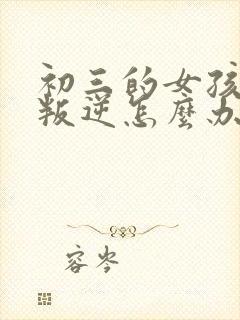 初三的女孩
叛逆怎麼办
容岑